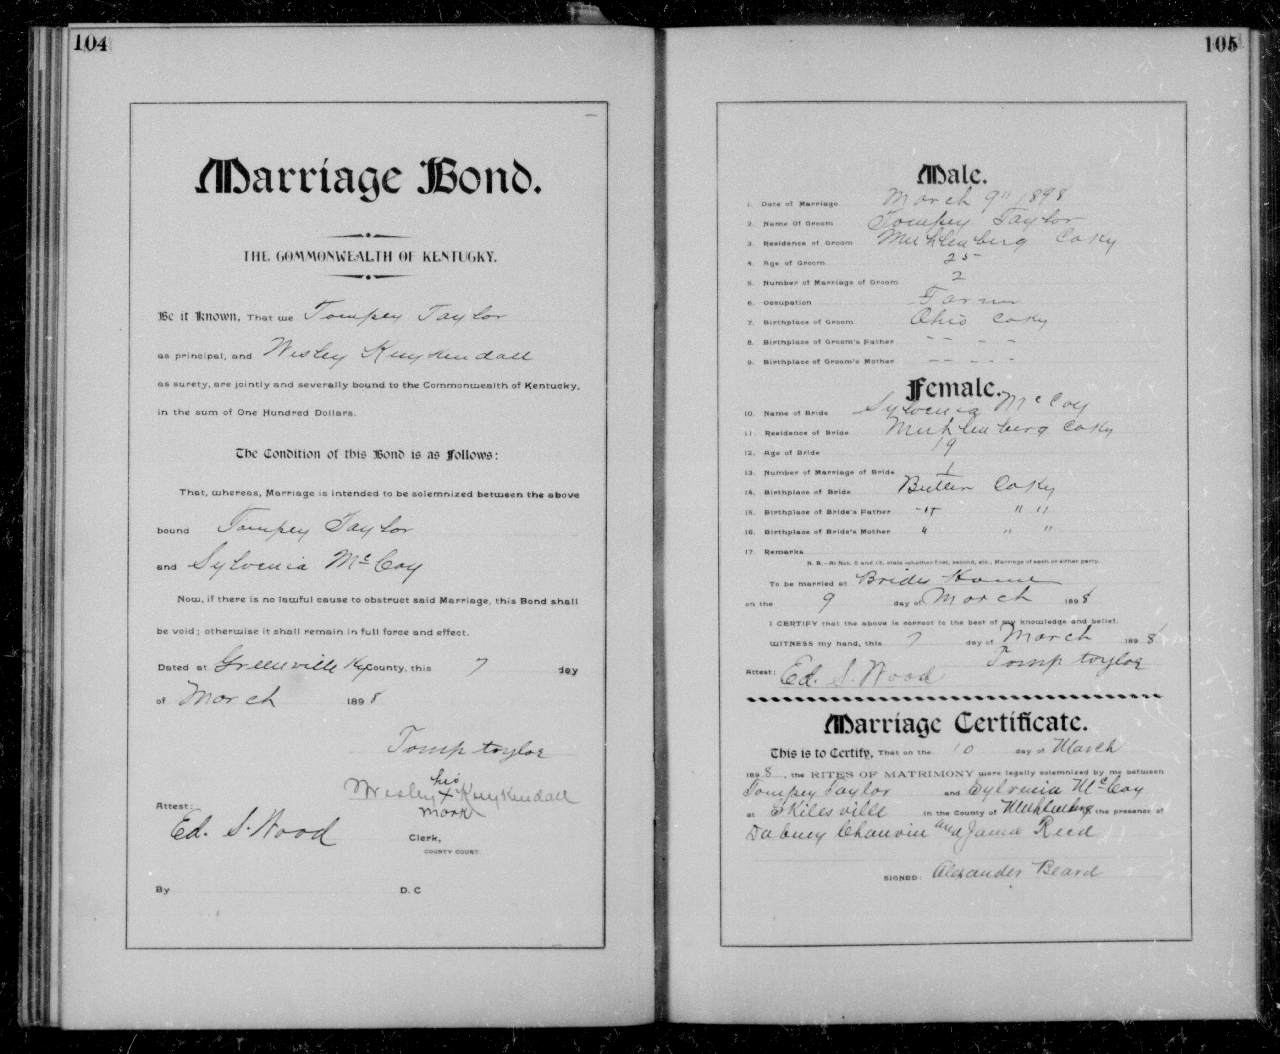 104
Marriage Bond.
THE COMMONWEALTH OF KENTUCKY.
Be it Known, That we Tompey Taylor
as principal, and Wesley Kuykendall
as surety, are jointly and severally bound to the Commonwealth of Kentucky,
in the sum of One Hundred Dollars.
The Condition of this Bond is as Follows:
That, whereas, Marriage is intended to be solemnized between the above
bound Tompey Taylor
and Sylvenia McCoy
Now, if there is no lawful cause to obstruct said Marriage, this Bond shall
be void; otherwise it shall remain in full force and effect.
Dated at Greenville Ky County, this 7 day
of March 1898
Tomp taylor
his
Wesley x Kuykendall
mark
Attest:
Ed. S. Wood
Clerk,
COUNTY COURT.
By D. C
105
Male.
1. Date of Marriage March 9" 1898
2. Name Of Groom Tompey Taylor
3. Residence of Groom Muhlenberg Co Ky
4. Age of Groom 25
5. Number of Marriage of Groom 2
6. Occupation Farmer
7. Birthplace of Groom Ohio Co Ky
8. Birthplace of Groom's Father - - - -
9. Birthplace of Groom's Mother - - - -
Female.
10. Name of Bride Sylvenia McCoy
11. Residence of Bride Muhlenberg Co Ky
12. Age of Bride 19
13. Number of Marriage of Bride 1
14. Birthplace of Bride Butler Co Ky
15. Birthplace of Bride's Father " " "
16. Birthplace of Bride's Mother " " "
17. Remarks
N. B.—At Nos. 5 and 13, state whether first, second, etc., Marriage of each or either party.
To be married at Brides Home
on the 9 day of March 1898
I CERTIFY that the above is correct to the best of my knowledge and belief.
WITNESS my hand, this 7 day of March 1898
Tomp taylor
Attest: Ed. S. Wood
Marriage Certificate.
This is to Certify, That on the 10 day of March
1898, the RITES OF MATRIMONY were legally solemnized by me between
Tompey Taylor and Sylvenia McCoy
at Skilesville in the County of Muhlenberg the presence of
Dabney Chauvin and Jama Reed
SIGNED: Alexander Beard